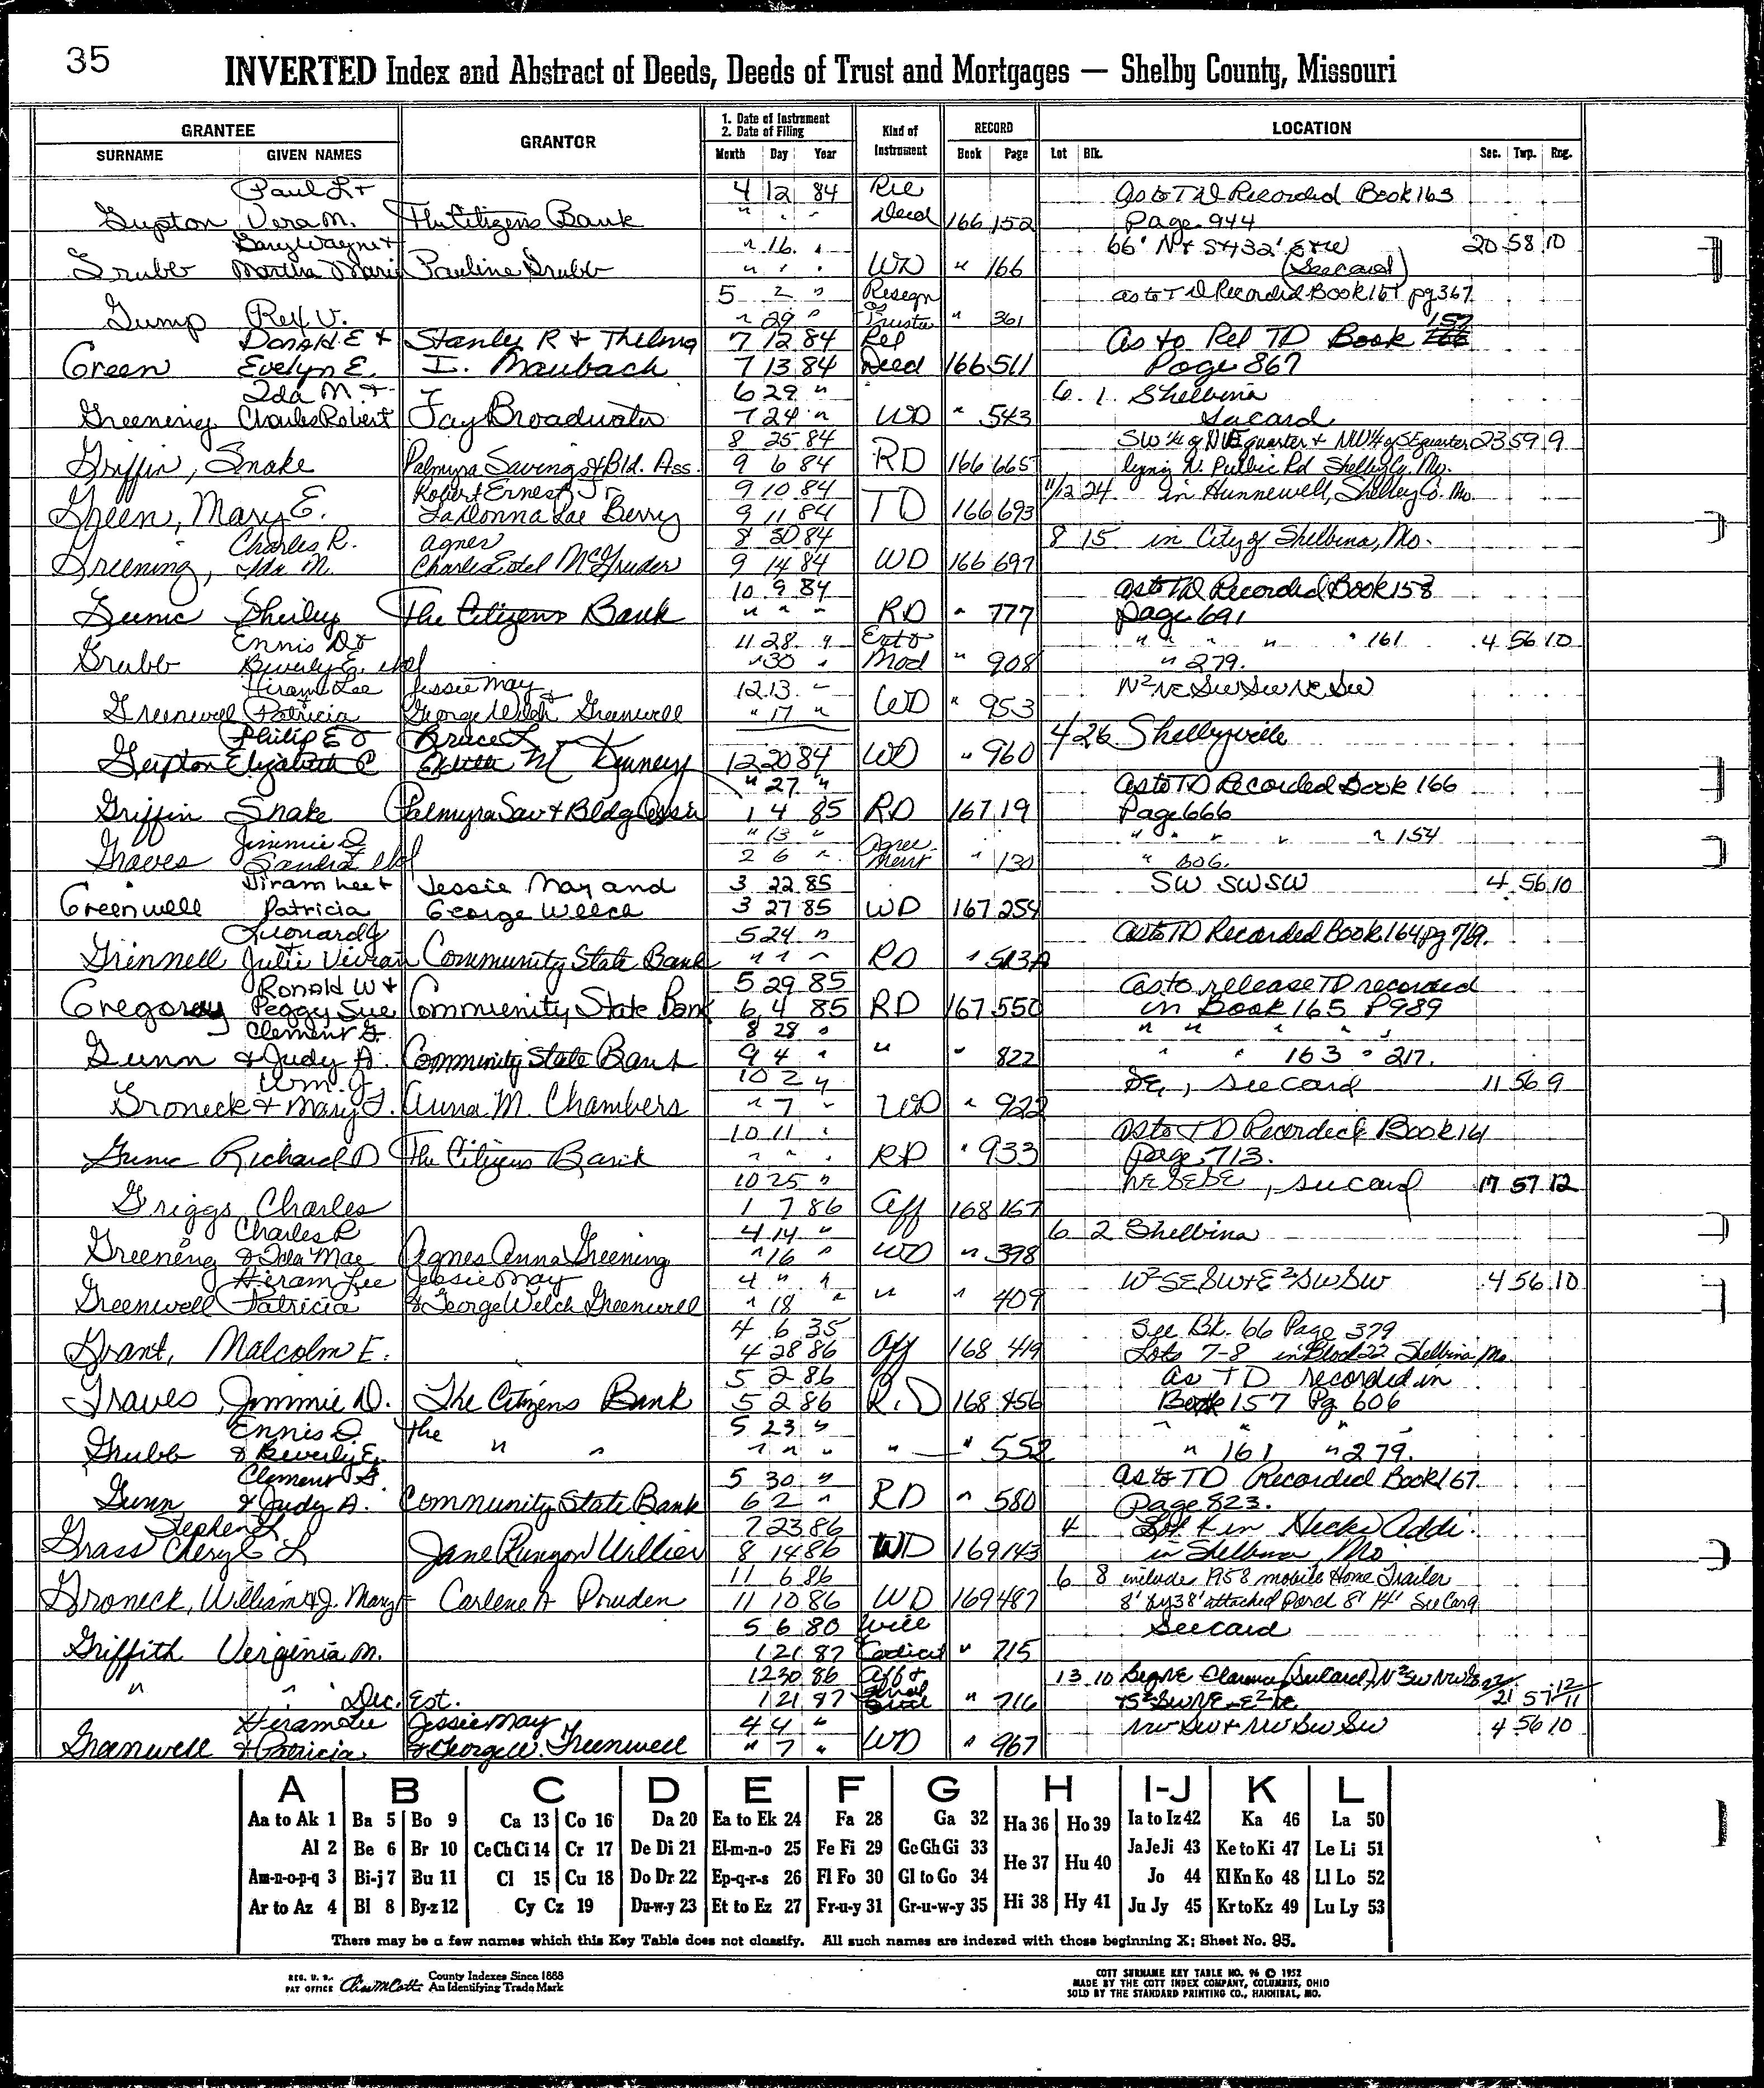 35
INVERTED Index and Abstract of Deeds, Deeds of Trust and Mortgages — Shelby County, Missouri
GRANTEE
SURNAME GIVEN NAMES
GRANTOR
1. Date of Instrument
2. Date of Filing
Month Day Year
Kind of
Instrument
RECORD
Book Page
LOCATION
Lot Blk. Sec. Twp. Rng.
Paul L + 4 12 84 Rel As to TD Recorded Book 163
Gupton Vera M. The Citizens Bank " " " Deed 166 152 Page 944
Gary Wayne + " 16 " 66' N + S 432' E + W 20 58 10
Grubb Martha Marie Pauline Grubb " " " WD " 166 (See card)
5 2 " Resegn as to TD Recorded Book 161 pg 367
Gump Rex V. " 29 " as Trustee " 361
Donald E + Stanley R + Thelma 7 12 84 Rel As to Rel TD Book 157
Green Evelyn E. I. Maubach 7 13 84 Deed 166 511 Page 867
Ida M. + 6 29 " 6 1 Shelbina
Greening Charles Robert Fay Broadwater 7 24 " WD " 543 See card
8 25 84 SW ¼ of NE quarter + NW ¼ of SE quarter 23 59 9
Griffin, Snake Palmyra Savings & Bld. Ass. 9 6 84 RD 166 665 lying N. Public Rd Shelby Co. Mo.
Robert Ernest Jr 9 10 84 11/12 24 in Hunnewell, Shelby Co. Mo.
Green, Mary E. LaDonna Rae Berry 9 11 84 TD 166 693
Charles R. Agnes 8 30 84 8 15 in City of Shelbina, Mo.
Greening, Ida M. Charles Edel McGruder 9 14 84 WD 166 697
10 9 84 as to TD Recorded Book 158
Shirley The Citizens Bank " " " RD " 777 page 691
Ennis D + 11 28 " Ext o " " " " " 161 4 56 10
Grubb Beverly E. " 30 " Mod " 908 " 279.
Hiram Lee Jessie May 12 13 " N² NE SW SW NE SW
Greenwell + Patricia George Welch Greenwell " 17 " WD " 953
Philip E + Bruce L + 4 26 Shelbyville
Gupton Elizabeth C M 12 20 84 WD " 960
" 27 " As to TD Recorded Book 166
Griffin Snake Palmyra Sav + Bldg Assn 1 4 85 RD 167 19 Page 666
Jimmie D " 13 " Agree- " " " " " 154
Graves Sandra 2 6 " ment " 130 " 606.
Hiram Lee + Jessie May and 3 22 85 SW SW SW 4 56 10
Greenwell Patricia George Welch 3 27 85 WD 167 254
Leonard J 5 24 " As to TD Recorded Book 164 pg 769.
Grinnell + Julie Vivian Community State Bank " " " RD " 513A
Ronald W + 5 29 85 As to release TD recorded
Gregoray Peggy Sue Community State Bank 6 4 85 RD 167 550 in Book 165 P989
Clement G. 8 28 " " " " " "
Gunn & Judy A. Community State Bank 9 4 " " " 822 " " 163 " 217.
Wm. J. 10 2 " SE, see card 11 56 9
Groneck + Mary F. Anna M. Chambers " 7 " WD " 922
10 11 " As to TD Recorded Book 161
Richard D The Citizens Bank " " " RD " 933 page 713.
10 25 " NE SE SE, see card 17 57 12
Griggs Charles 1 7 86 Aff 168 167
Charles R 4 14 " 6 2 Shelbina
Greening & Ida Mae Agnes Anna Greening " 16 " WD " 398
Hiram Lee Jessie May 4 " " W² SE SW + E² SW SW 4 56 10
Greenwell Patricia & George Welch Greenwell " 18 " " " 409
4 6 35 See Bk. 66 Page 379
Grant, Malcolm E. 4 28 86 Aff 168 419 Lots 7-8 in Block 22 Shelbina Mo.
5 2 86 as TD recorded in
Graves Jimmie D. The Citizens Bank 5 2 86 R.D 168 456 Book 157 Pg 606
Ennis D The 5 23 " " " " "
Grubb & Beverly E. " " " " " " " 552 " 161 " 279.
Clement G. 5 30 " As to TD Recorded Book 167
Gunn & Judy A. Community State Bank 6 2 " RD " 580 Page 823.
Stephen L 7 23 86 4 Lot K in Hecks Addi.
Grass Cheryl L Jane Runyon Willier 8 14 86 WD 169 143 in Shelbina, Mo
11 6 86 6 8 include 1958 mobile Home Trailer
Groneck, William & J. Mary F Carlene A Pruden 11 10 86 WD 169 487 8' by 38' attached Porch 8' 14' See Card
5 6 80 Will See card
Griffith Verginia M. 1 21 87 Codicil " 715
12 30 86 Aff + 13 10 Beg NE Clarence (See card), N² SW NW
" " Dec. Est. 1 21 87 " 716 + S² SW NE - E² NE 21 57 11
Hiram Lee Jessie May 4 4 " NW SW + NW SW SW 4 56 10
Greenwell & Patricia & George W. Greenwell " 7 " WD " 967
A B C D E F G H I-J K L
Aa to Ak 1 Ba 5 Bo 9 Ca 13 Co 16 Da 20 Ea to Ek 24 Fa 28 Ga 32 Ha 36 Ho 39 Ia to Iz 42 Ka 46 La 50
Al 2 Be 6 Br 10 Ce Ch Ci 14 Cr 17 De Di 21 El-m-n-o 25 Fe Fi 29 Ge Gh Gi 33 He 37 Hu 40 Ja Je Ji 43 Ke to Ki 47 Le Li 51
Am-n-o-p-q 3 Bi-j 7 Bu 11 Cl 15 Cu 18 Do Dr 22 Ep-q-r-s 26 Fl Fo 30 Gl to Go 34 Jo 44 Kl Kn Ko 48 Ll Lo 52
Ar to Az 4 Bl 8 By-z 12 Cy Cz 19 Du-w-y 23 Et to Ez 27 Fr-u-y 31 Gr-u-w-y 35 Hi 38 Hy 41 Ju Jy 45 Kr to Kz 49 Lu Ly 53
There may be a few names which this Key Table does not classify. All such names are indexed with those beginning X; Sheet No. 95.
REG. U. S. PAT OFFICE County Indexes Since 1888
An Identifying Trade Mark
COTT SURNAME KEY TABLE NO. 96 © 1952
MADE BY THE COTT INDEX COMPANY, COLUMBUS, OHIO
SOLD BY THE STANDARD PRINTING CO., HANNIBAL, MO.